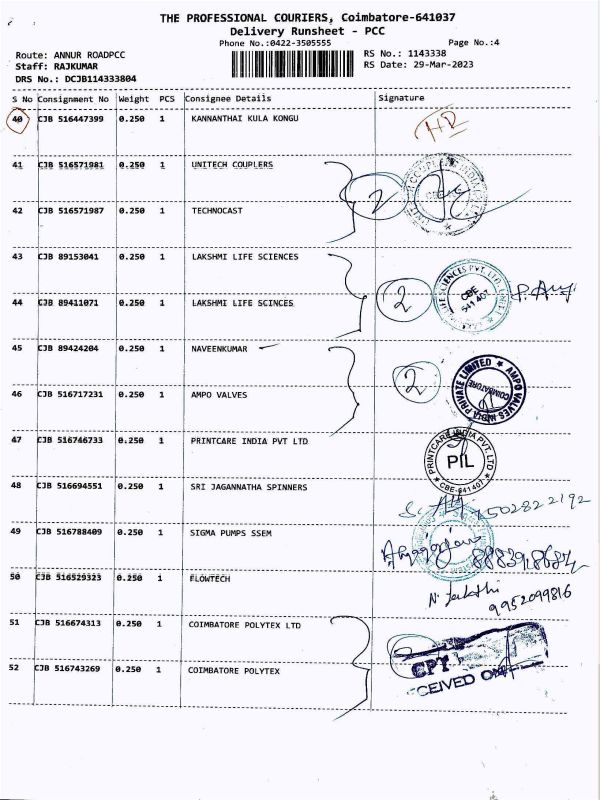 THE PROFESSIONAL COURIERS, Coimbatore-641037
Delivery Runsheet - PCC
Phone No.:0422-3505555 Page No.:4
Route: ANNUR ROADPCC RS No.: 1143338
Staff: RAJKUMAR RS Date: 29-Mar-2023
DRS No.: DCJB114333804
S No Consignment No Weight PCS Consignee Details Signature
40 CJB 516447399 0.250 1 KANNANTHAI KULA KONGU
41 CJB 516571981 0.250 1 UNITECH COUPLERS
2
42 CJB 516571987 0.250 1 TECHNOCAST
43 CJB 89153041 0.250 1 LAKSHMI LIFE SCIENCES
LIFE SCIENCES PVT. LTD.
CBE
641 407
2
44 CJB 89411071 0.250 1 LAKSHMI LIFE SCINCES
45 CJB 89424204 0.250 1 NAVEENKUMAR
2
AMPO VALVES INDIA PRIVATE LIMITED
COIMBATORE
46 CJB 516717231 0.250 1 AMPO VALVES
47 CJB 516746733 0.250 1 PRINTCARE INDIA PVT LTD
PRINTCARE INDIA PVT. LTD
PIL
CBE-641407
48 CJB 516694551 0.250 1 SRI JAGANNATHA SPINNERS
7502822192
49 CJB 516788409 0.250 1 SIGMA PUMPS SSEM
50 CJB 516529323 0.250 1 FLOWTECH
9952099816
51 CJB 516674313 0.250 1 COIMBATORE POLYTEX LTD
52 CJB 516743269 0.250 1 COIMBATORE POLYTEX
CPT
CEIVED ON